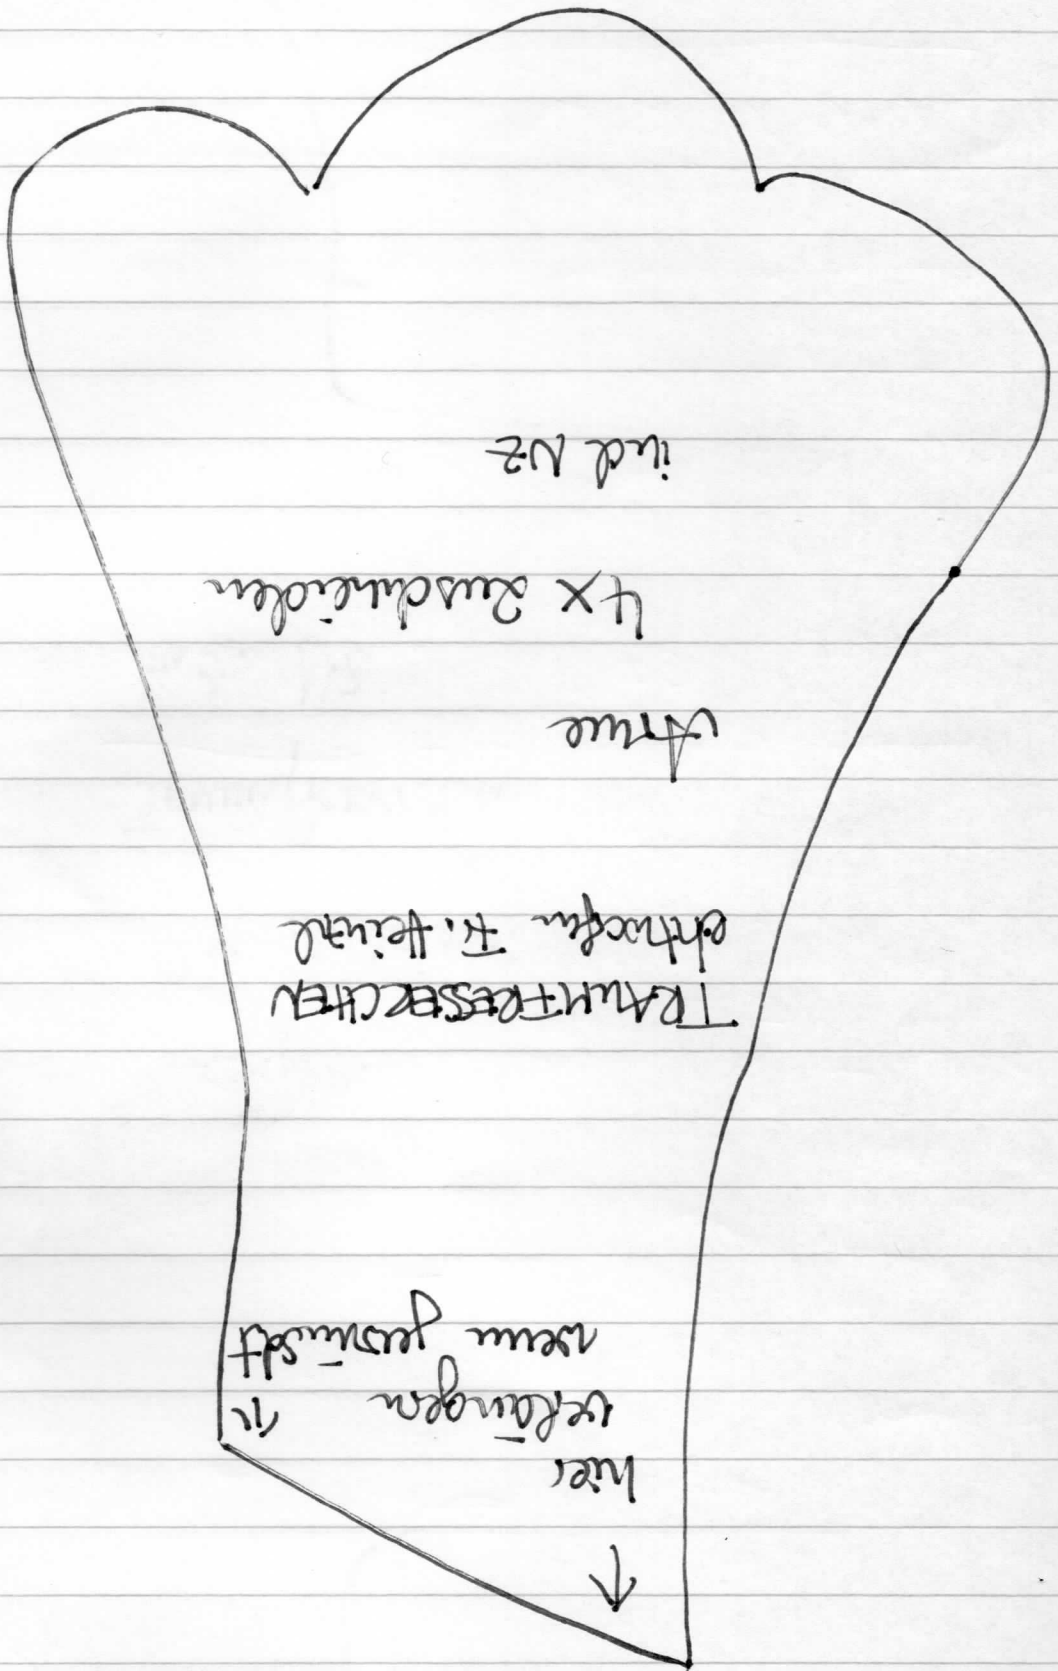 hier
verlängern
wenn gewünscht
TRAUMFRESSERCHEN
entworfen Fr.
Arme
4x zuschneiden
incl NZ